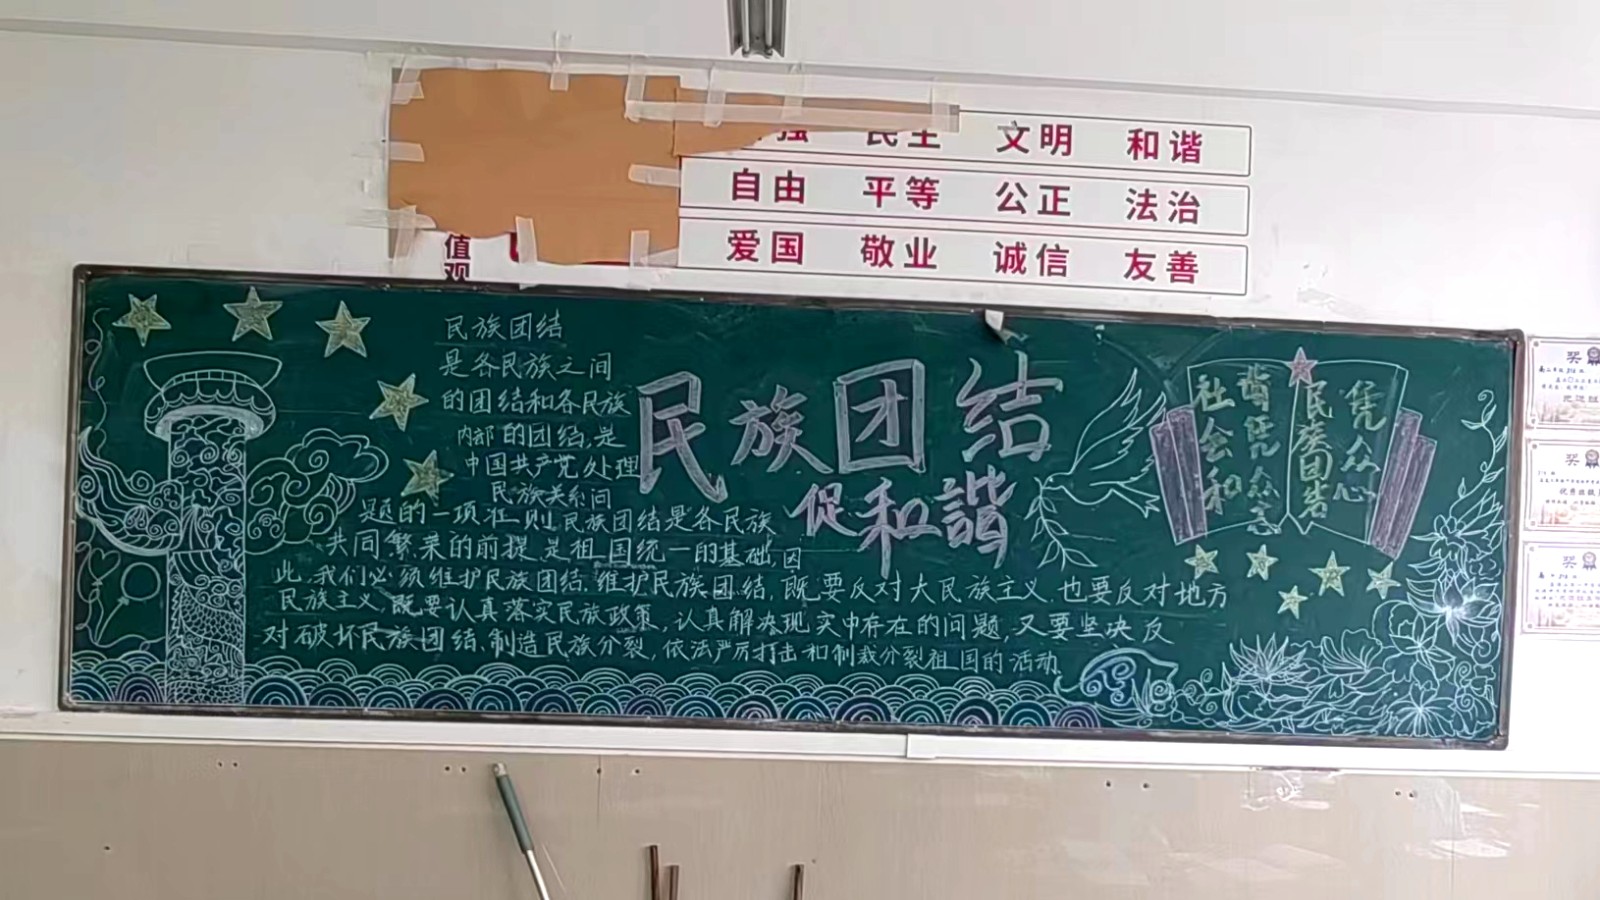 强 民主 文明 和谐
自由 平等 公正 法治
爱国 敬业 诚信 友善
值
观
民族团结
是各民族之间
的团结和各民族
内部的团结,是
中国共产党处理
民族关系问
题的一项准则,民族团结是各民族
共同繁荣的前提,是祖国统一的基础,因
此,我们必须维护民族团结.维护民族团结,既要反对大民族主义.也要反对地方
民族主义,既要认真落实民族政策,认真解决现实中存在的问题,又要坚决反
对破坏民族团结、制造民族分裂,依法严厉打击和制裁分裂祖国的活动.
民族团结
促和諧
凭众心
民族团结
谐凭众志
社会和
奖
奖
奖